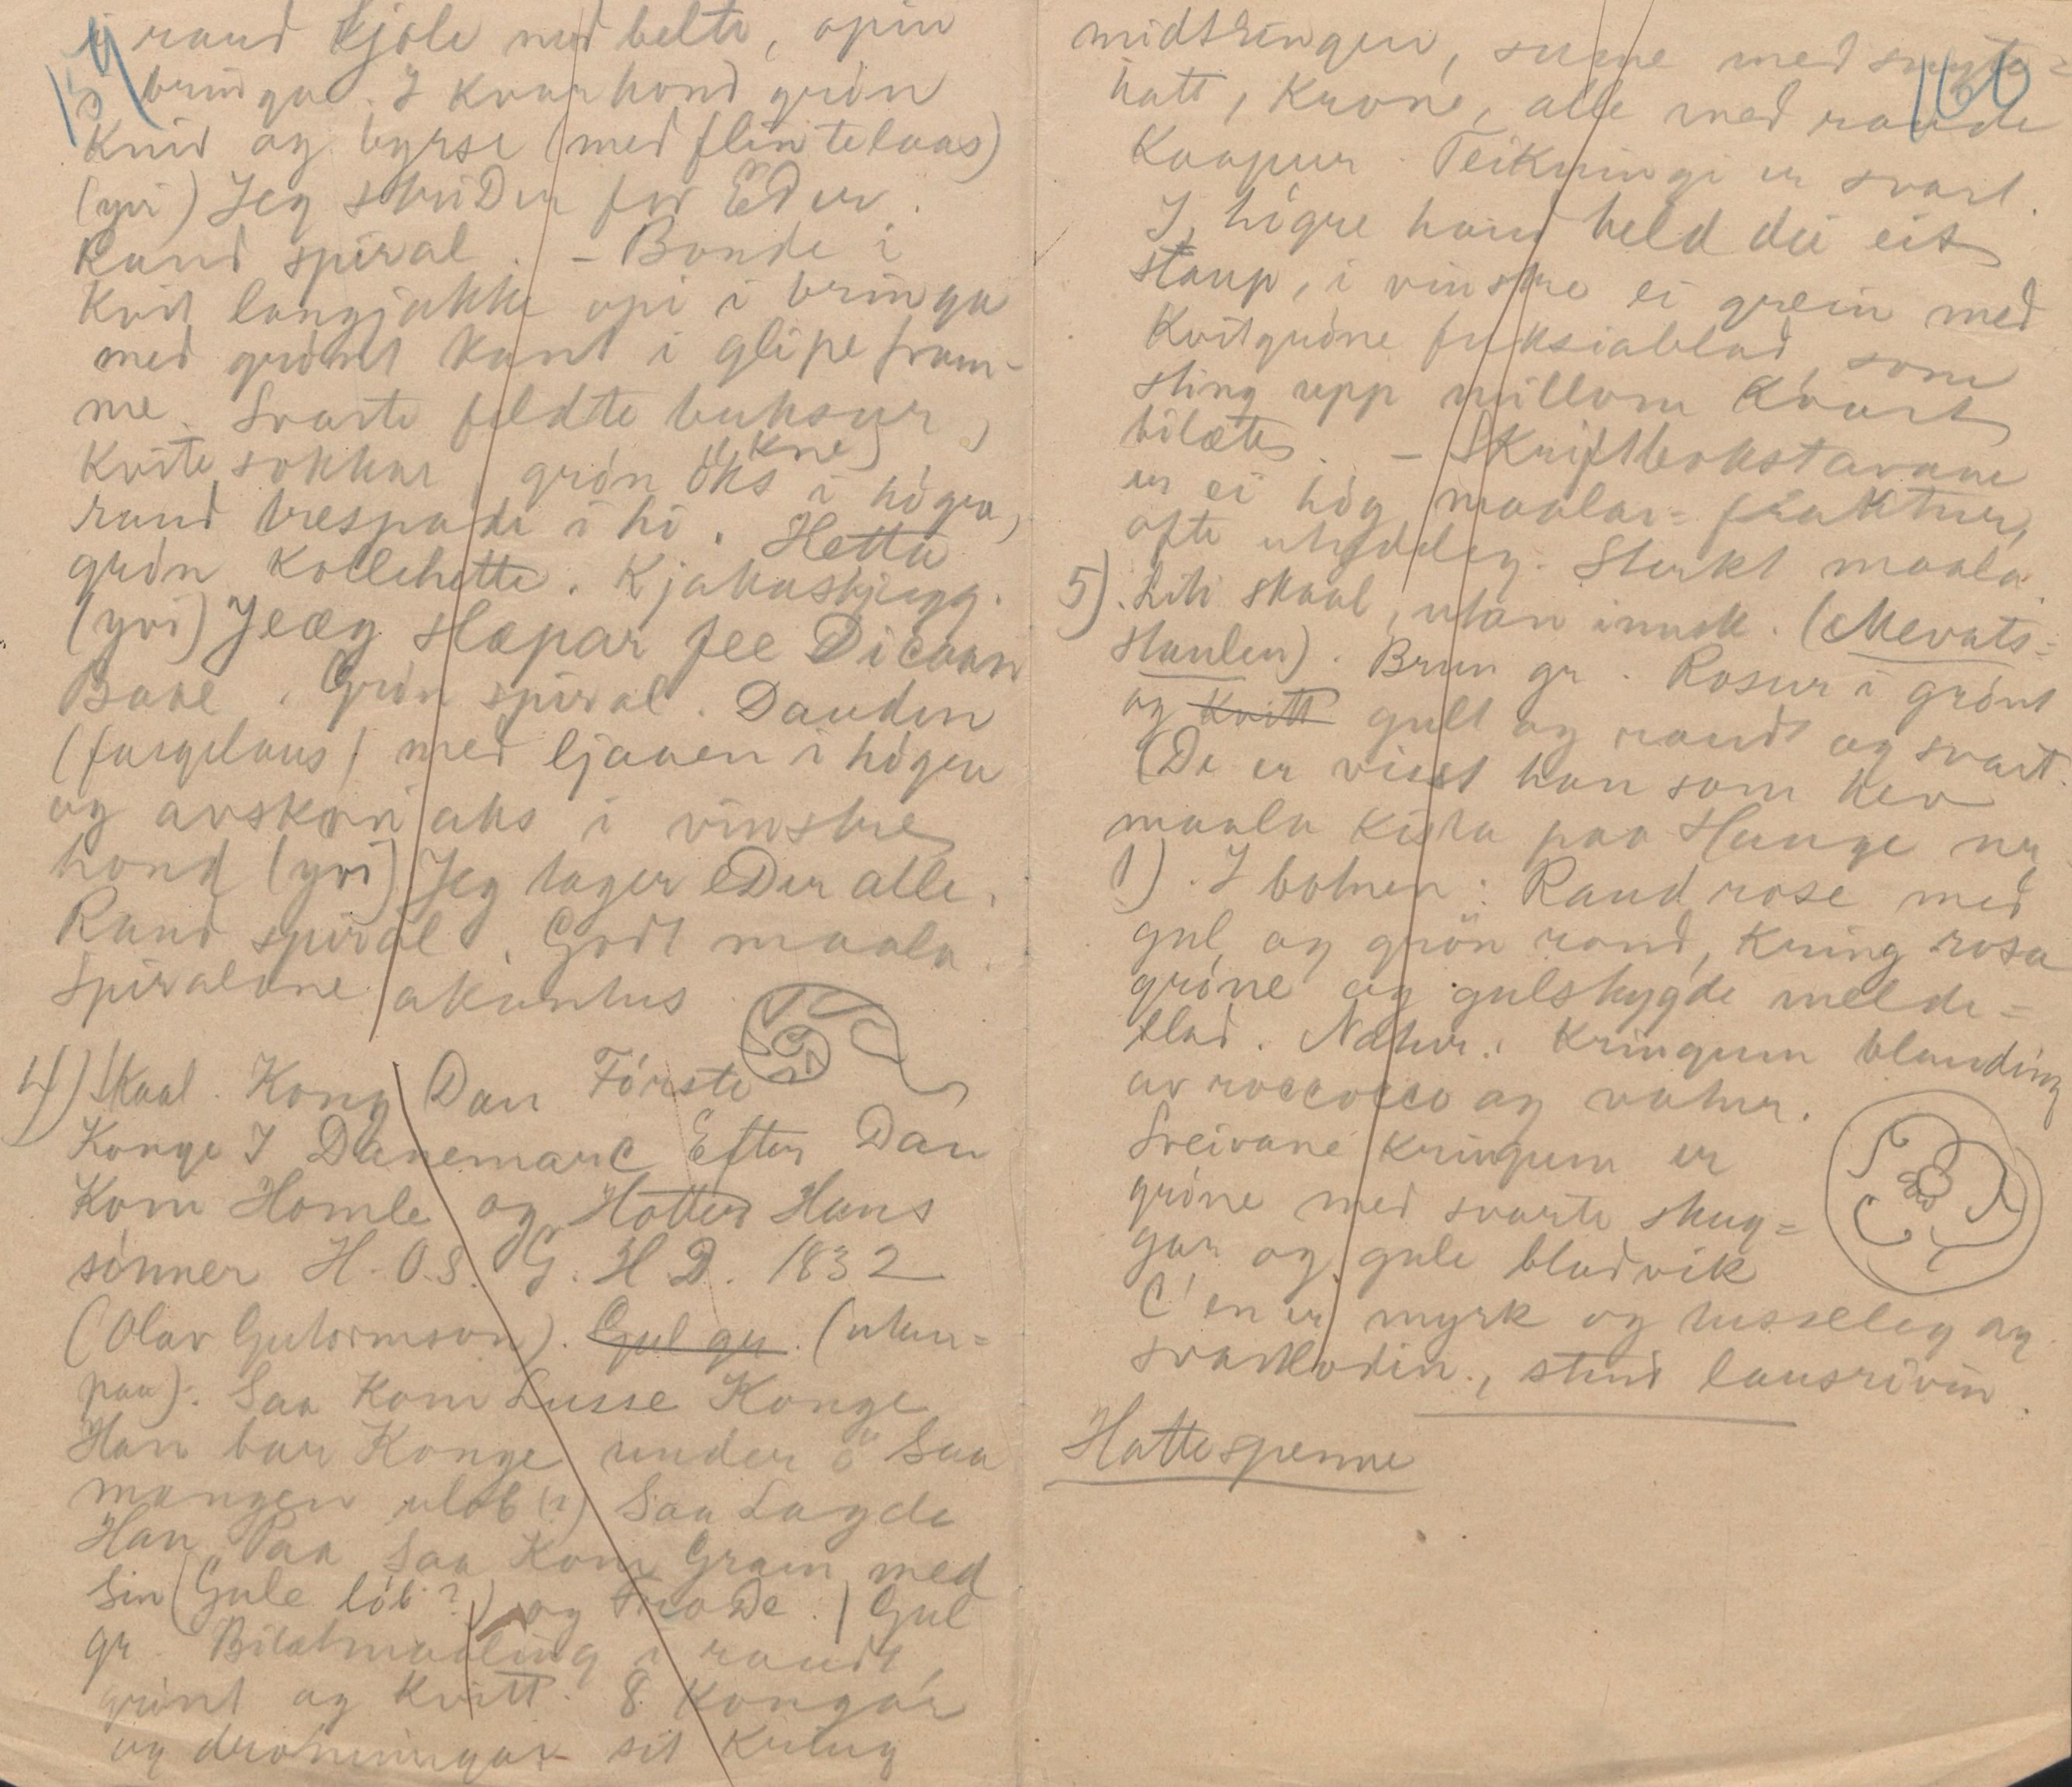 159
i raud kjole med belte, opin
i bringa. I kvar hond grön
kniv og byrse (med flintelaas)
(yvi) Jeg striDer for EDer.
Raud spiral. - Bonde i
kvit langjakke opi i bringa
med grönt kant i glipe fram-
me. Svarte feldte buksur,
kvite sokkar, grön öks i högra,
raud trespade i hi. Hetta
grön kollehette. Kjakaskjegg.
(yvi) Jeæg slæpar fee Dicaan
Baae. Grön spiral. Dauden
(fargelaus) med ljaaen i högra
og avskori aks i vinstre
hond (yvi) Jeg tager eDer alle.
Raud spiral. Godt maala.
Spiralane akantus
4) Skaal. Kong Dan Förste
Konge I Danemarc Efter Dan
Kom Homle og Hotter Hans
sönner H.O.S. G. H D. 1832
(Olav Gutormson). Gul gr. (utan-
paa): Saa Kom Lusse Konge
Han bar Konge under ö Saa
mangen ulöb (?) Saa Lagde
Han Paa Saa Kom Gram med
Sin (Gule löb?) og FroDe. | Gul
gr. Bilætmaaling i raudt,
grönt og kvitt. 8 kongar
og droningar sit kring
160
midtringen, sume med
hatt, krone, alle med raude
kaapur. Teikningi er svart.
I högre hand held dei eit
staup, i vinstre ei grein med
kvitgröne fuksiablad, som
sting upp millom kvart
bilæte. - Skriftbokstavane
er ei hög maalar-fraktur,
ofte utydeleg. Sterkt maala.
5). Liti skaal, utan innsk. (Mevats-
staulen). Brun gr. Rosur i grönt
og kvitt gult og raudt og svart.
(De er visst han som hev
maala kista paa Hauge nr
1). I botnen: Raud rose med
gul og grön rand, kring rosa
gröne og gulskygde melde-
blad. Natur. Kringum blanding
av roccocco og natur.
Sveivane kringum er
gröne med svarte skug-
gar og gule bladvik
C'en er myrk og tusseleg og
svartlodin., stund lausrivin.
Hattespenne